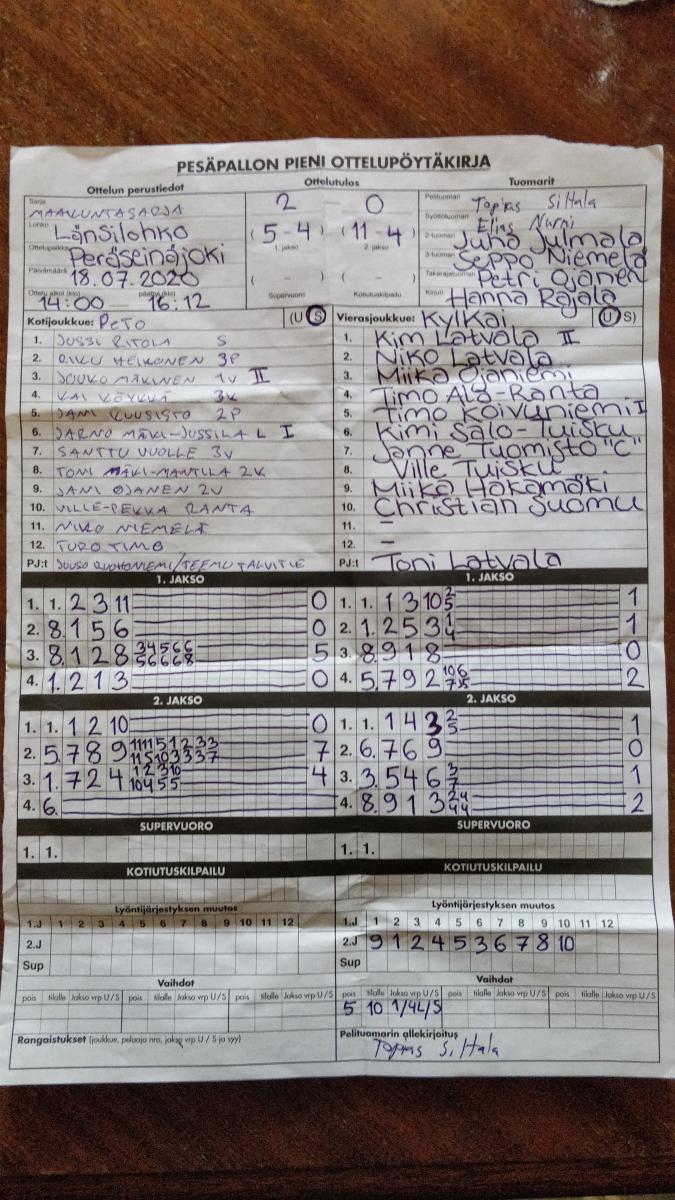 PESÄPALLON PIENI OTTELUPÖYTÄKIRJA
Ottelun perustiedot Ottelutulos Tuomarit
Sarja MAAKUNTASARJA 2 0 Pelituomari Topias Siltala
Lohko Länsilohko (5-4) (11-4) Syöttötuomari Elias Nurmi
1. jakso 2. jakso 2-tuomari Juha Julmala
Ottelupaikka Peräseinäjoki 3-tuomari Seppo Niemelä
Päivämäärä 18.07.2020 ( - ) ( - ) Takarajatuomari Petri Ojanen
Ottelu alkoi (klo) 14:00 päättyi (klo) 16.12 Supervuoro Kotiutuskilpailu Kirjuri Hanna Rajala
Kotijoukkue: PeTo (U S) Vierasjoukkue: KylKai (U S)
1. JUSSI RITOLA S 1. Kim Latvala II
2. RIKU HEIKONEN 3P 2. Niko Latvala
3. JOUKO MÄKINEN 1V II 3. Miika Ojaniemi
4. KAI KÖYKKÄ 3K 4. Timo Ala-Ranta
5. JANI KUUSISTO 2P 5. Timo Koivuniemi I
6. JARNO MÄKI-JUSSILA L I 6. Kimi Salo-Tuisku
7. SANTTU VUOLLE 3V 7. Janne Tuomisto "C"
8. TONI MÄKI-MANTILA 2K 8. Ville Tuisku
9. JANI OJANEN 2V 9. Miika Hakamäki
10. VILLE-PEKKA RANTA 10. Christian Suomu
11. NIKO NIEMELÄ 11. –
12. TURO TIMO 12. –
PJ:t /TEEMU TALVITIE PJ:t Toni Latvala
1. JAKSO 1. JAKSO
1. 1. 2 3 11 0 1. 1. 1 3 10 2 5 1
2. 8. 1 5 6 0 2. 1. 2 5 3 1 4 1
3. 8. 1 2 8 3 4 5 6 6 5 6 6 6 8 5 3. 8. 9 1 8 0
4. 1. 2 1 3 0 4. 5. 7 9 2 10 6 2
2. JAKSO 2. JAKSO
1. 1. 1 2 10 0 1. 1. 1 4 3 2 5 1
2. 5. 7 8 9 11 11 5 1 2 3 3 11 5 10 3 3 3 7 7 2. 6. 7 6 9 0
3. 1. 7 2 4 1 2 3 10 10 4 5 5 4 3. 3. 5 4 6 3 7 1
4. 6. 4. 8. 9 1 3 2 4 4 4 2
SUPERVUORO SUPERVUORO
1. 1. 1. 1.
KOTIUTUSKILPAILU KOTIUTUSKILPAILU
Lyöntijärjestyksen muutos Lyöntijärjestyksen muutos
1.J 1 2 3 4 5 6 7 8 9 10 11 12 1.J 1 2 3 4 5 6 7 8 9 10 11 12
2.J 2.J 9 1 2 4 5 3 6 7 8 10
Sup Sup
Vaihdot Vaihdot
pois tilalle Jakso vrp U/S pois tilalle Jakso vrp U/S pois tilalle Jakso vrp U/S pois tilalle Jakso vrp U/S pois tilalle Jakso vrp U/S pois tilalle Jakso vrp U/S
5 10 1/4L/S
Rangaistukset (joukkue, pelaaja nro, jakso vrp U / S ja syy) Pelituomarin allekirjoitus
Topias Siltala